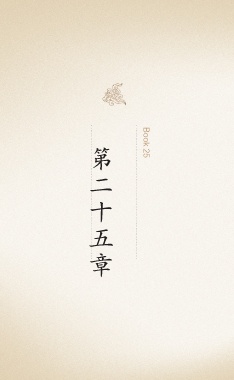 Book 25
第二十五章